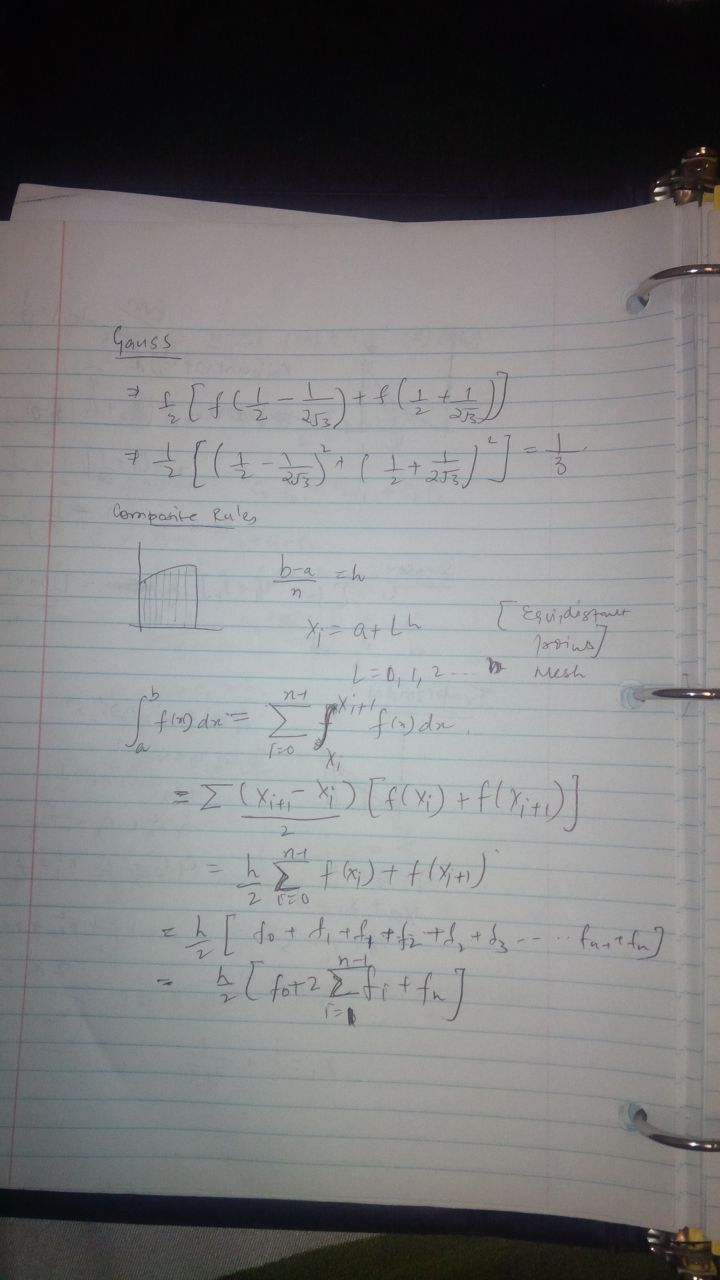 Gauss
⇒ f/2 [ f(1/2 - 1/(2√3)) + f(1/2 + 1/(2√3)) ]
⇒ 1/2 [ (1/2 - 1/(2√3))² + (1/2 + 1/(2√3))² ] = 1/3
Composite Rules
(b-a)/n = h
xᵢ = a + Lh [Equidistant
points]
L = 0, 1, 2 ... n Mesh
∫ₐᵇ f(x) dx = Σᵢ₌₀ⁿ⁻¹ ∫_{xᵢ}^{xᵢ₊₁} f(x) dx.
= Σ (xᵢ₊₁ - xᵢ)/2 [ f(xᵢ) + f(xᵢ₊₁) ]
= h/2 Σᵢ₌₀ⁿ⁻¹ f(xᵢ) + f(xᵢ₊₁)
= h/2 [ f₀ + f₁ + f₁ + f₂ + f₂ + f₃ ----- fₙ₋₁ + fₙ ]
= h/2 [ f₀ + 2 Σᵢ₌₁ⁿ⁻¹ fᵢ + fₙ ]